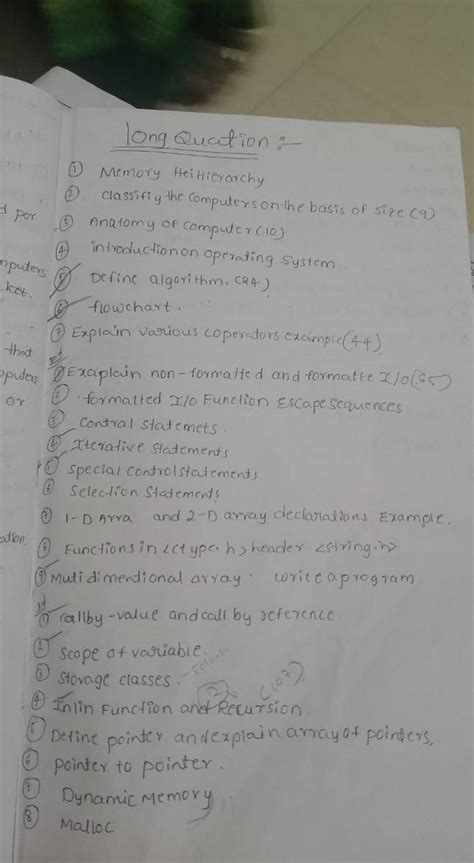 long Quation :-
① Memory HeiHierarchy
② classifiy the computers on the basis of size (9)
③ Anatomy of computer (10)
④ introduction on operating system.
⑤ Define algorithm. (24)
⑥ flowchart.
⑦ Explain various coperators example (44)
① Exaplain non-formatted and formatte I/O (65)
② formatted I/O Function Escape sequences
③ Contral statemets.
④ Iterative Statements
⑤ special control statements
⑥ Selection Statements
⑦ 1-D Arra and 2-D array declarations Example.
⑧ Functions in <ctype.h> header <string.h>
⑨ Multi dimentional array. write a program
① Callby-value and call by reference
② Scope of variable.
③ Storage classes.
④ Inlin Function and Recursion. (107)
⑤ Define pointer and explain array of pointers,
⑥ pointer to pointer.
⑦ Dynamic Memory
⑧ Malloc
d for
mputers
ket.
that
mputers
or
ation